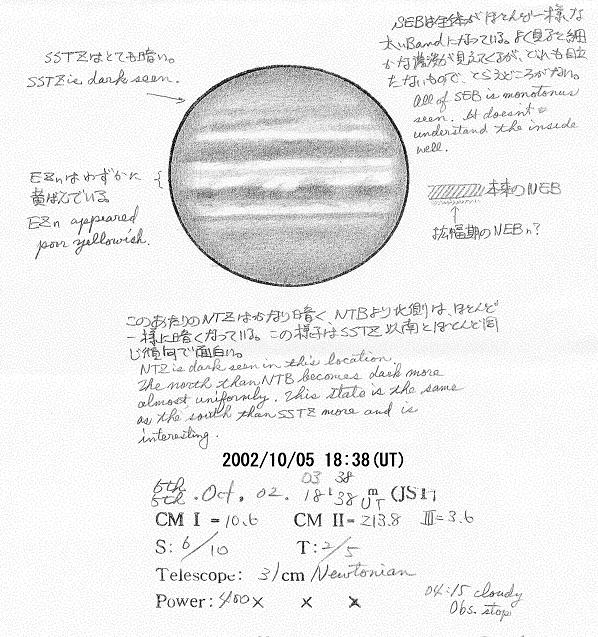 SEBは全体がほとんど一様な
太いBandになっている。よく見ると細
かな濃淡が見えてくるが、どれも目立
たないもので、とらえどころがない。
All of SEB is monotonus
seen. It doesn't
understand the inside
well.
SSTZはとても暗い。
SSTZ is dark seen.
EZnはわずかに
黄ばんでいる。
EZn appeared
poor yellowish.
本来のNEB
拡幅期のNEBn?
このあたりのNTZはかなり暗く、NTBより北側は、ほとんど
一様に暗くなっている。この様子はSSTZ以南とほとんど同
じ傾向で面白い。
NTZ is dark seen in this location.
The north than NTB becomes dark more
almost uniformly. This state is the same
as the south than SSTZ more and is
interesting.
2002/10/05 18:38(UT)
6th 03 38
5th. Oct, 02. 18h 38m UT (JST)
CM I = 10.6 CM II= 213.8 III=3.6
S: 6/10 T: 2/5
Telescope: 31cm Newtonian
Power: 400× × ×
04:15 cloudy
Obs. stop